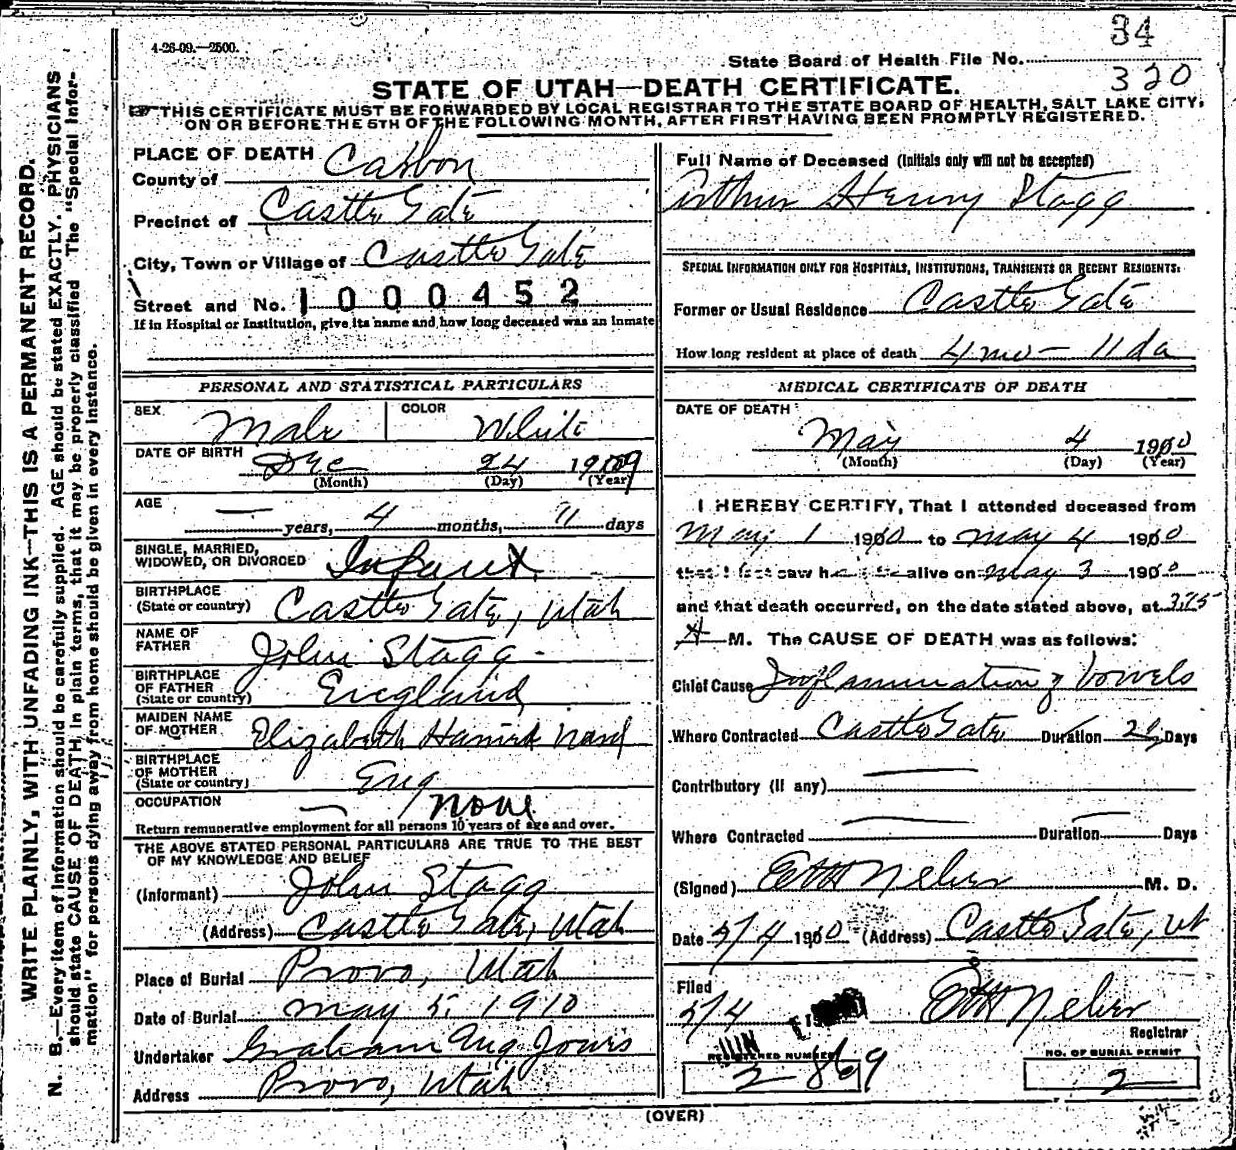 34
4-26-09.—2500.
State Board of Health File No.
320
STATE OF UTAH—DEATH CERTIFICATE.
THIS CERTIFICATE MUST BE FORWARDED BY LOCAL REGISTRAR TO THE STATE BOARD OF HEALTH, SALT LAKE CITY,
ON OR BEFORE THE 5TH OF THE FOLLOWING MONTH, AFTER FIRST HAVING BEEN PROMPTLY REGISTERED.
WRITE PLAINLY, WITH UNFADING INK—THIS IS A PERMANENT RECORD.
N. B.—Every item of information should be carefully supplied. AGE should be stated EXACTLY. PHYSICIANS
should state CAUSE OF DEATH in plain terms, that it may be properly classified. The "Special Infor-
mation" for persons dying away from home should be given in every instance.
PLACE OF DEATH
County of Carbon
Precinct of Castle Gate
City, Town or Village of Castle Gate
Street and No. 1000452
If in Hospital or Institution, give its name and how long deceased was an inmate
PERSONAL AND STATISTICAL PARTICULARS
SEX Male COLOR White
DATE OF BIRTH Dec 24 1909
(Month) (Day) (Year)
AGE — years, 4 months, 11 days
SINGLE, MARRIED,
WIDOWED, OR DIVORCED Infant
BIRTHPLACE
(State or country) Castle Gate, Utah
NAME OF
FATHER John Stagg
BIRTHPLACE
OF FATHER
(State or country) England
MAIDEN NAME
OF MOTHER Elizabeth
BIRTHPLACE
OF MOTHER
(State or country) Eng
OCCUPATION — none
Return remunerative employment for all persons 10 years of age and over.
THE ABOVE STATED PERSONAL PARTICULARS ARE TRUE TO THE BEST
OF MY KNOWLEDGE AND BELIEF
(Informant) John Stagg
(Address) Castle Gate, Utah
Place of Burial Provo, Utah
Date of Burial May 5, 1910
Undertaker Graham
Address Provo, Utah
Full Name of Deceased (Initials only will not be accepted)
Arthur Henry Stagg
SPECIAL INFORMATION ONLY FOR HOSPITALS, INSTITUTIONS, TRANSIENTS OR RECENT RESIDENTS:
Former or Usual Residence Castle Gate
How long resident at place of death 4 mo — 11 da
MEDICAL CERTIFICATE OF DEATH
DATE OF DEATH
May 4 1910
(Month) (Day) (Year)
I HEREBY CERTIFY, That I attended deceased from
May 1 1910 to May 4 1910
that I last saw h alive on May 3 1910
and that death occurred, on the date stated above, at
A M. The CAUSE OF DEATH was as follows:
Chief Cause Inflammation of bowels
Where Contracted Castle Gate Duration Days
Contributory (if any) —
Where Contracted — Duration — Days
(Signed) M. D.
Date 5/4 1910 (Address) Castle Gate, Ut
Filed
5/4
Registrar
REGISTERED NUMBER
2 869
NO. OF BURIAL PERMIT
2
(OVER)